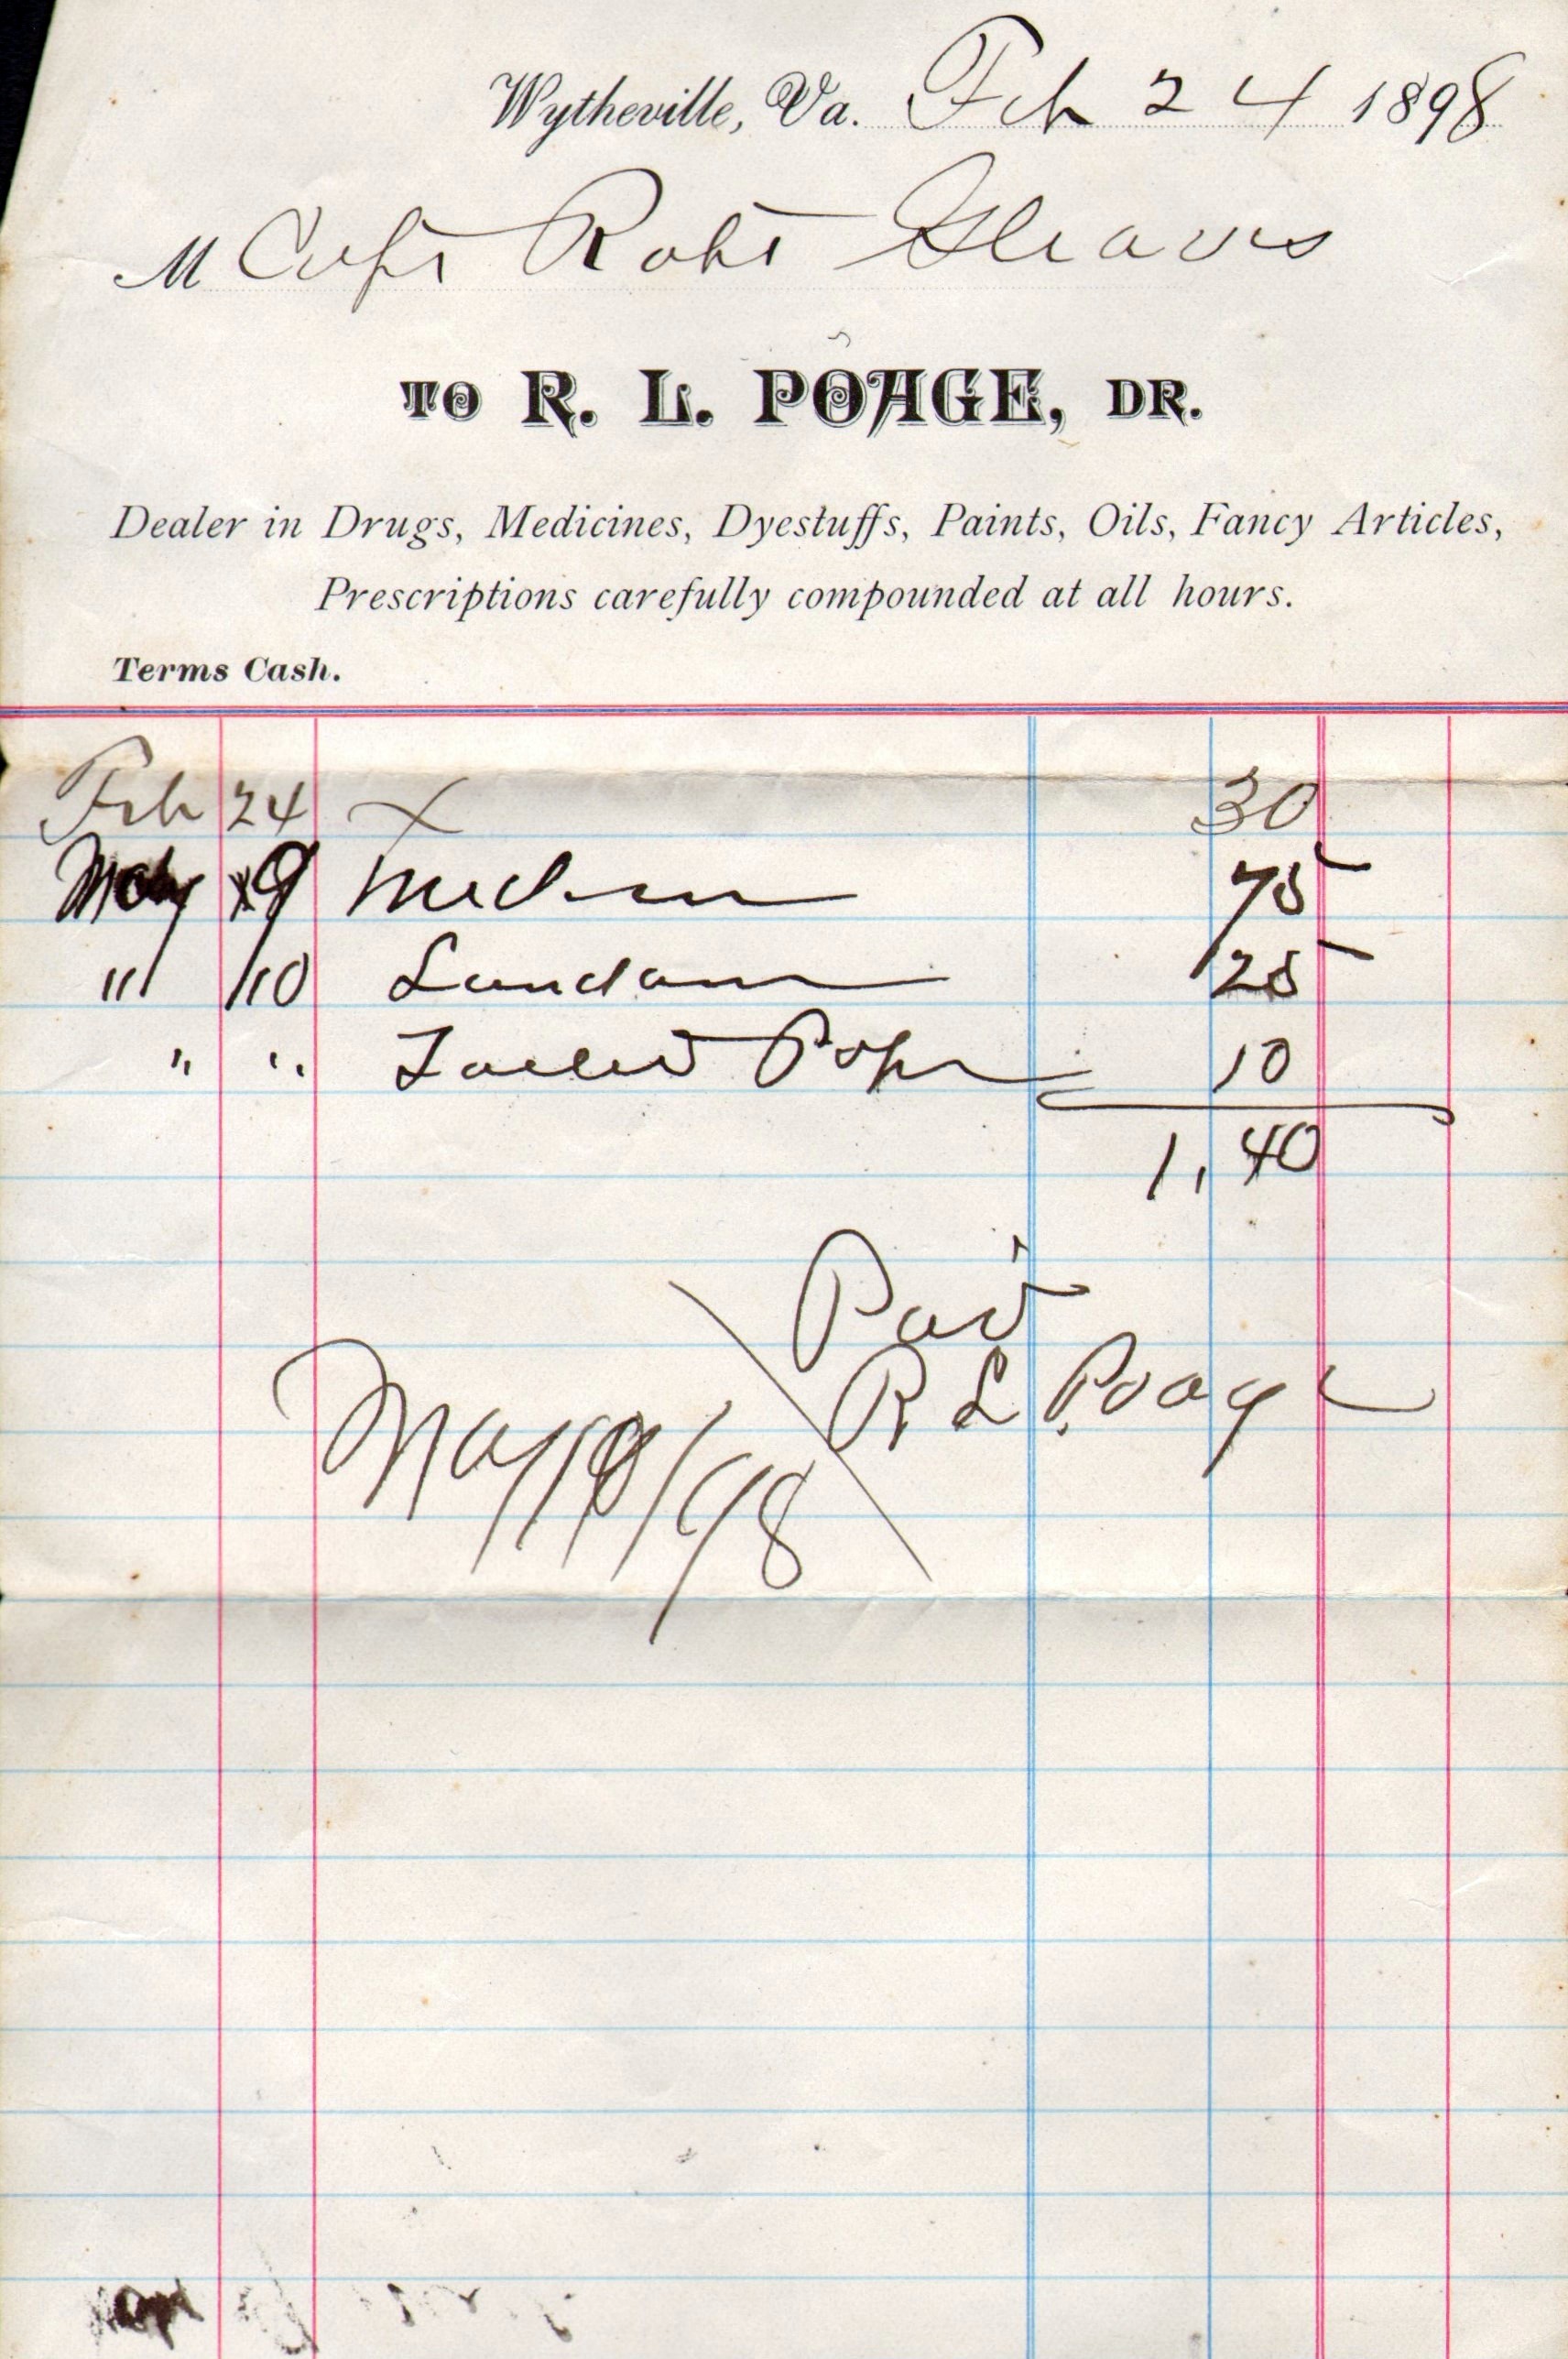 Wytheville, Va. Feb 24 1898
M Capt Robt Gleaves
TO R. L. POAGE, DR.
Dealer in Drugs, Medicines, Dyestuffs, Paints, Oils, Fancy Articles,
Prescriptions carefully compounded at all hours.
Terms Cash.
Feb 24 X 30
May 9 75
" 10 25
" " Toilet Paper 10
1,40
Paid
R L Poage
May 10/98